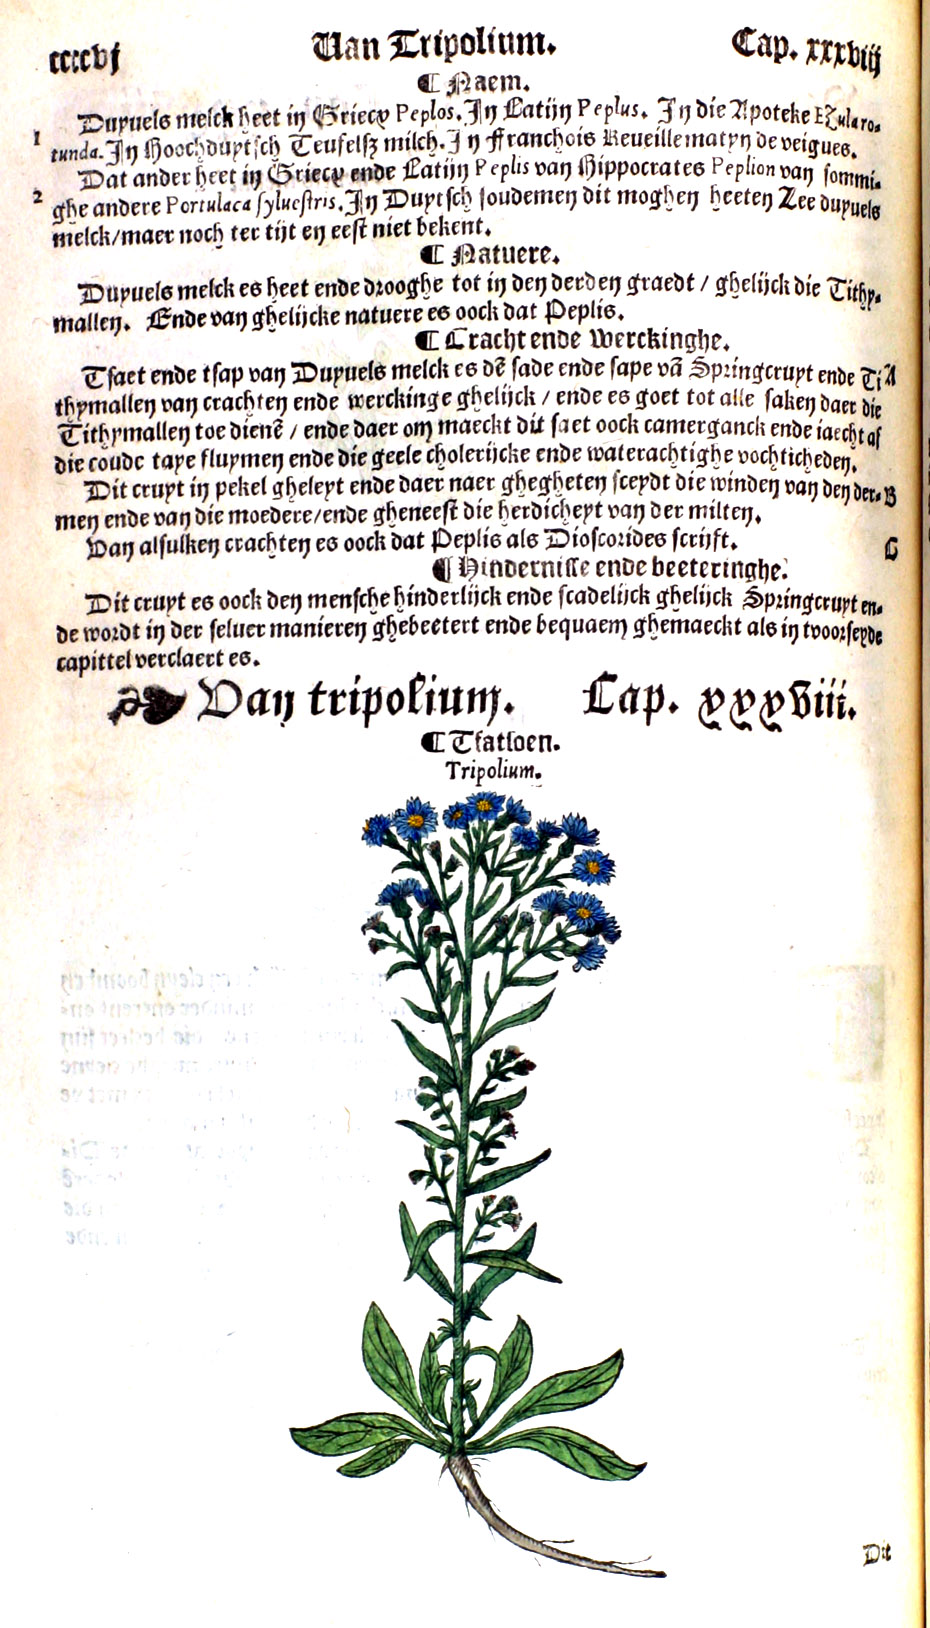 ccccvj Van Tripolium. Cap. xxxviij
¶ Naem.
Duyuels melck heet in Griecx Peplos. In Latijn Peplus. In die Apoteke Ezula ro-
1 tunda. In Hoochduytsch Teufelsz milch. In Franchois Reueillematyn de veigues.
Dat ander heet in Griecx ende Latijn Peplis van Hippocrates Peplion van sommi-
2 ghe andere Portulaca syluestris. In Duytsch soudemen dit moghen heeten Zee duyuels
melck/maer noch ter tijt en eest niet bekent.
¶ Natuere.
Duyuels melck es heet ende drooghe tot in den derden graedt / ghelijck die Tithy-
mallen. Ende van ghelijcke natuere es oock dat Peplis.
¶ Cracht ende werckinghe.
Tsaet ende tsap van Duyuels melck es dē sade ende sape vā Springcruyt ende Ti A
thymallen van crachten ende werckinge ghelijck / ende es goet tot alle saken daer die
Tithymallen toe dienē / ende daer om maeckt dit saet oock camerganck ende iaecht af
die coude taye fluymen ende die geele cholerijcke ende waterachtighe vochticheden.
Dit cruyt in pekel gheleyt ende daer naer ghegheten sceydt die winden van den der- B
men ende van die moedere/ende gheneest die herdicheyt van der milten.
Van alsulken crachten es oock dat Peplis als Dioscorides scrijft. C
¶ Hindernisse ende beeteringhe.
Dit cruyt es oock den mensche hinderlijck ende scadelijck ghelijck Springcruyt en-
de wordt in der seluer manieren ghebeetert ende bequaem ghemaeckt als in tvoorseyde
capittel verclaert es.
Van tripolium. Cap. xxxviii.
¶ Tfatsoen.
Tripolium.
Dit